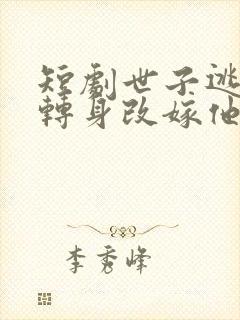 短劇世子逃
轉身改嫁他
李秀峰